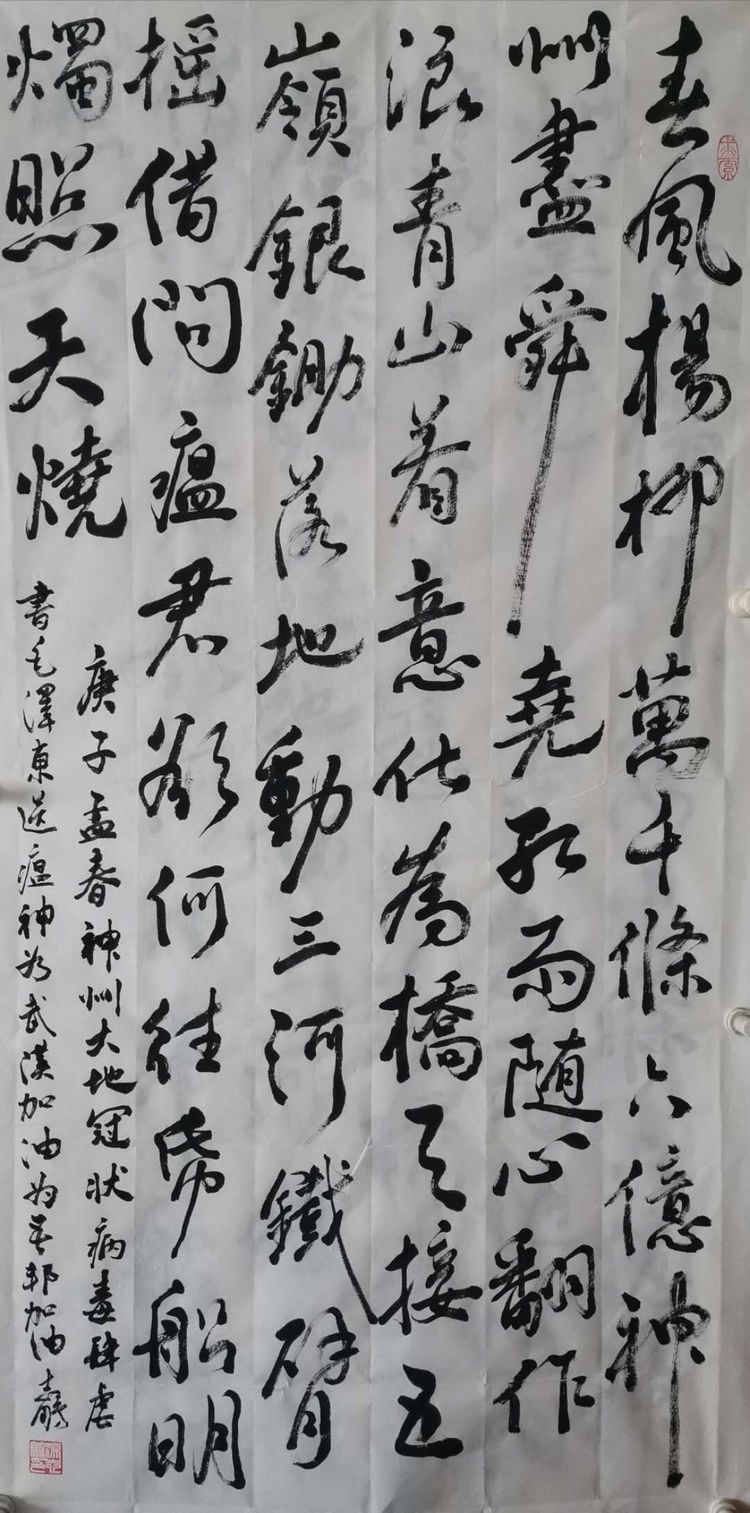 春風楊柳萬千條六億神
州盡舜堯紅雨随心翻作
浪青山着意化為橋天接五
嶺銀鋤落地動三河鐵臂
摇借問瘟君欲何往帋船明
燭照天燒
庚子孟春神州大地冠状病毒肆虐
書毛澤東送瘟神为武漢加油为吾邦加油